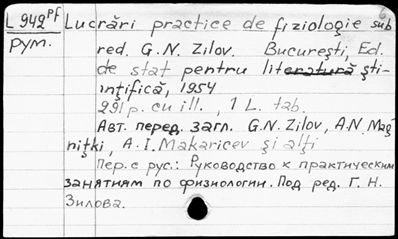 L 942 pf
Рум.
Lucrări practice de fiziologie sub
red. G. N. Zilov. Bucureşti, Ed.
de stat pentru literatură şti-
inţifică, 1954
291 p. cu ill., 1 L. tab.
Авт. перед. загл. G.N. Zilov, A.N. Mag
niţki, A. I. Makaricev şi alţi
Пер. с рус.: Руководство к практическим
занятиям по физиологии. Под ред. Г. Н.
Зилова.